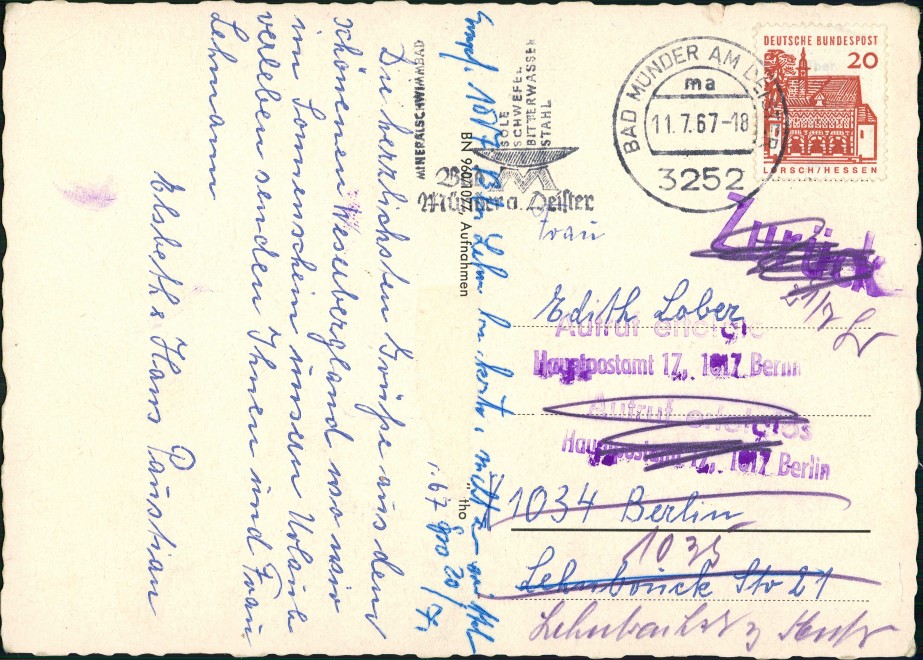 Die herzlichsten Grüße aus dem
schönen Weserbergland wo wir
im Sonnenschein unsern Urlaub
verleben senden Ihnen und Frau
Lehmann
Elsbeth & Hans Paustian
MINERALSCHWIMMBAD
SOLE
SCHWEFEL
BITTERWASSER
STAHL
Bad
Münder a. Deister
BAD MÜNDER AM DEISTER
ma
11.7.67-18
3252
DEUTSCHE BUNDESPOST
20
LORSCH/HESSEN
BN 960 1077 Aufnahmen
Zurück
21/7
Frau
Edith Lober
Aufruf erfolglos
Hauptpostamt 17, 1017 Berlin
Aufruf erfolglos
Hauptpostamt 17, 1017 Berlin
1034 Berlin
1035
Lehmbruck Str 21
Empf. 1017
67 20/7.